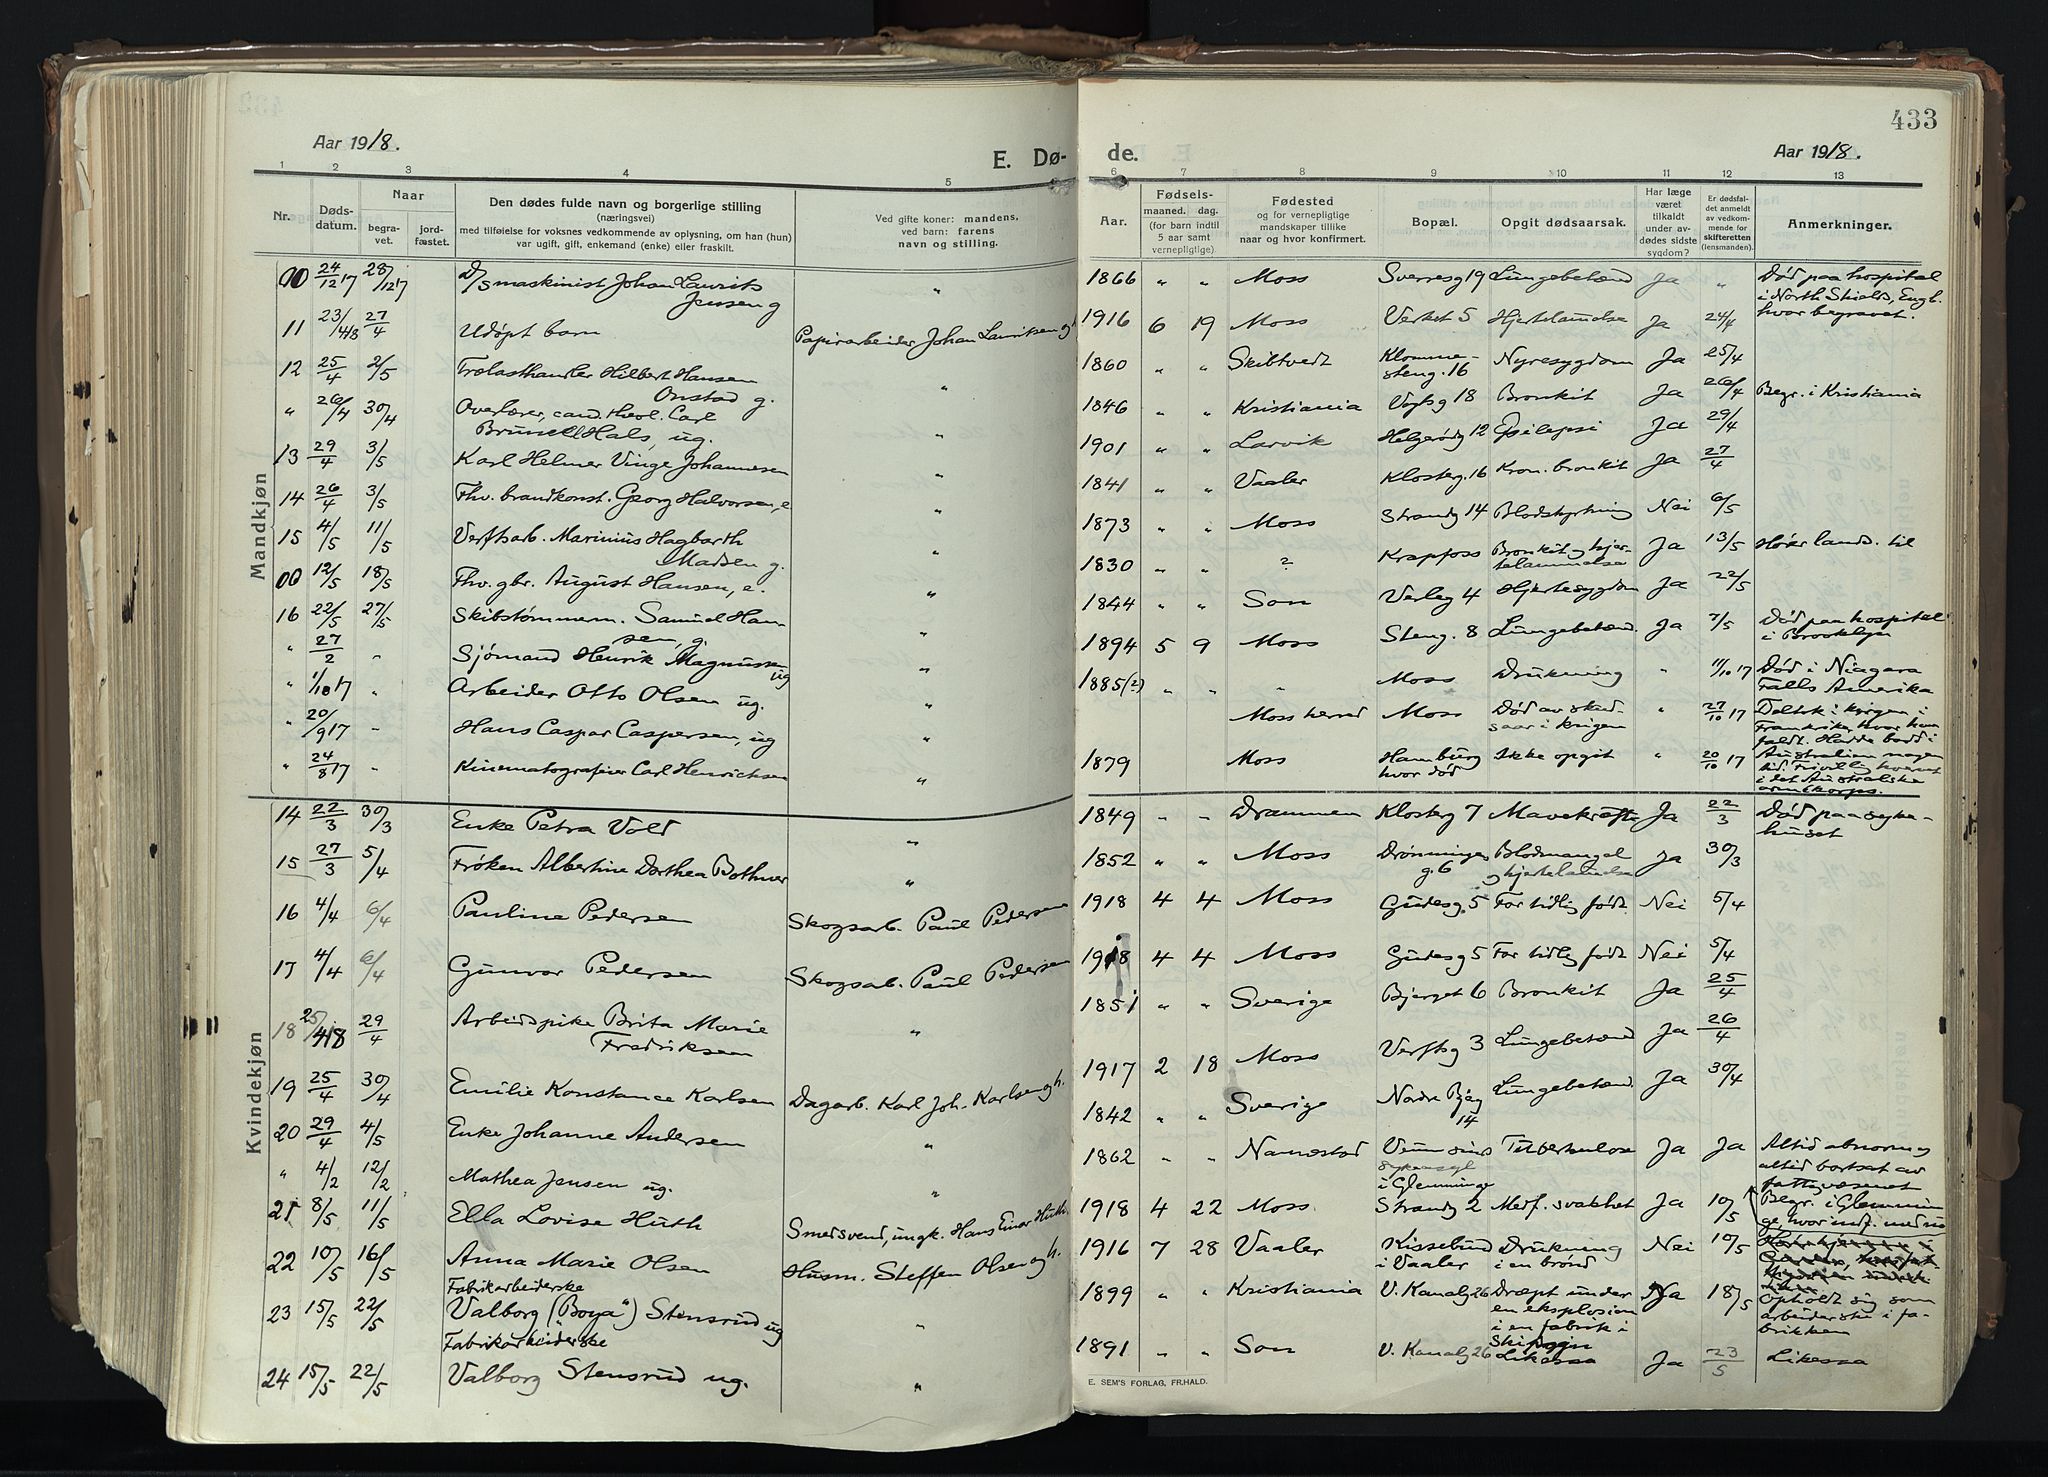 Aar 1918.
E. Dø-
1 2 3 4 5
Nr.
Døds-
datum.
Naar
begra-
vet.
jord-
fæstet.
Den dødes fulde navn og borgerlige stilling
(næringsvei)
med tilføielse for voksnes vedkommende av oplysning, om han (hun)
var ugift, gift, enkemand (enke) eller fraskilt.
Ved gifte koner: mandens,
ved barn: farens
navn og stilling.
Mandkjøn
00 24/12 17 28/12 17 D/S maskinist Johan Laurits "
Jensen g
11 23/4 18 27/4 Udøpt barn Papirarbeider Johan Lauritsen g h
12 25/4 2/5 Trælasthandler Hilbert Hansen "
Onstad g.
" 26/4 30/4 Overlærer, cand. theol. Carl
Brunell Hals, ug. "
13 29/4 3/5 Karl Helmer Vinge Johannesen "
14 26/4 3/5 Fhv. brandkonst. Georg Halvorsen, e "
15 4/5 11/5 Verftsarb. Marinius Hagbarth "
Madsen g.
00 12/5 18/5 Fhv. gbr. August Hansen, e. "
16 22/5 27/5 Skibstømmerm. Samuel Han- "
sen, g.
" 27/2 " Sjømand Henrik Magnussen "
ug
" 1/10 17 " Arbeider Otto Olsen ug. "
" 20/9 17 - Hans Caspar Caspersen, ug "
" 24/8 17 - Kinematografeier Carl Henrichsen "
Kvindekjøn
14 22/3 30/3 Enke Petra Vold "
15 27/3 5/4 Frøken Albertine Dorthea Bothner "
16 4/4 6/4 Pauline Pedersen Skogsarb. Paul Pedersen
17 4/4 6/4 Gunvor Pedersen Skogsarb. Paul Pedersen
18 25/4 18 29/4 Arbeidspike Brita Marie "
Fredriksen
19 25/4 30/4 Emilie Konstance Karlsen Dagarb. Karl Joh. Karlsen g h.
20 29/4 4/5 Enke Johanne Andersen "
" 4/2 12/2 Mathea Jensen ug. "
21 8/5 11/5 Ella Lovise Huth Smedsvend, ungk. Hans Einar Huth.
22 10/5 16/5 Anna Marie Olsen Husm. Steffen Olsen g h.
Fabrikarbeiderske
23 15/5 22/5 Valborg ("Boya") Stensrud ug "
Fabrikarbeiderske
24 15/5 22/5 Valborg Stensrud ug. "
433
de.
Aar 1918.
6 7 8 9 10 11 12 13
Aar.
Fødsels-
maaned. dag.
(for barn indtil
5 aar samt
vernepligtige)
Fødested
og for vernepligtige
mandskaper tillike
naar og hvor konfirmert.
Bopæl.
Opgit dødsaarsak.
Har læge
været
tilkaldt
under av-
dødes sidste
sygdom?
Er dødsfal-
det anmeldt
av vedkom-
mende for
skifteretten
(lensmanden).
Anmerkninger.
1866 " " Moss Sverresg 19 Lungebetænd Ja " Død paa hospital
i North Shields, Engl.
hvor begravet.
1916 6 19 Moss Verket 5 Hjertelammelse Ja 24/4
1860 " " Skibtvedt Klomme-
steng. 16 Nyresygdom Ja 25/4
1846 " " Kristiania Vogtsg 18 Bronkit Ja 26/4 Begr. i Kristiania
1901 " " Larvik Helgerødg 12 Epilepsi Ja 29/4
1841 " " Vaaler Klosterg. 16 Kron. bronkit Ja 27/4
1873 " " Moss Strandg 14 Blodstyrtning Nei 6/5
1830 " " ? Krapfoss Bronkit og hjer-
telammelse Ja 13/5 Hører lands. til
1844 " " Son Verleg 4 Hjertesygdom Ja 22/5
1894 5 9 Moss Steng. 8 Lungebetænd. Ja 7/5 Død paa hospital
i Brooklyn
1885(?) " " " Moss Drukning " 11/10 17 Død i Niagara
Falls Amerika
Moss herred Moss Død av skud-
saar i krigen " 27/10 17 Deltok i krigen i
Frankrike, hvor han
faldt. Hadde bodd i
Australien nogen
tid. Frivillig hvervet
i det Australiske
armekorps.
1879 Moss Hamburg
hvor død Ikke opgit " 20/10 17
1849 " " Drammen Klosterg 7 Mavekræft Ja 22/3 Død paa syke-
huset
1852 " " Moss Dronningens
g. 6 Blodmangel
og hjertelammelse Ja 30/3
1918 4 4 Moss Gudesg. 5 For tidlig født. Nei 5/4
1918 4 4 Moss Gudesg 5 For tidlig født Nei 5/4
1851 " " Sverige Bjerget 6 Bronkit Ja 25/4
1917 2 18 Moss Verftsg 3 Lungebetænd Ja 26/4
1842 " " Sverige Nordre Bjeg
14 Lungebetænd. Ja 30/4
1862 " " Nannestad Veum sinds
sykeasyl
i Glemminge Tuberkulose Ja Ja Altid abnorm og
altid bortsat av
fattigvæsenet
Begr. i Glemmin
ge, hvor indf. med no
1918 4 22 Moss. Strandg 2 Medf. svakhet Ja 10/5
1916 7 28 Vaaler Kissebund
i Vaaler Drukning
i en brønd Nei 10/5
1899 " " Kristiania V. Kanalg 26 Dræpt under
en eksplosion
i en fabrik i
Ski sogn Ja 18/5 opholdt sig som
arbeiderske i fa-
brikken
1891 " " Son V. Kanalg 26 Likesaa Ja 23/5 Likesaa
E. SEM'S FORLAG, FR.HALD.